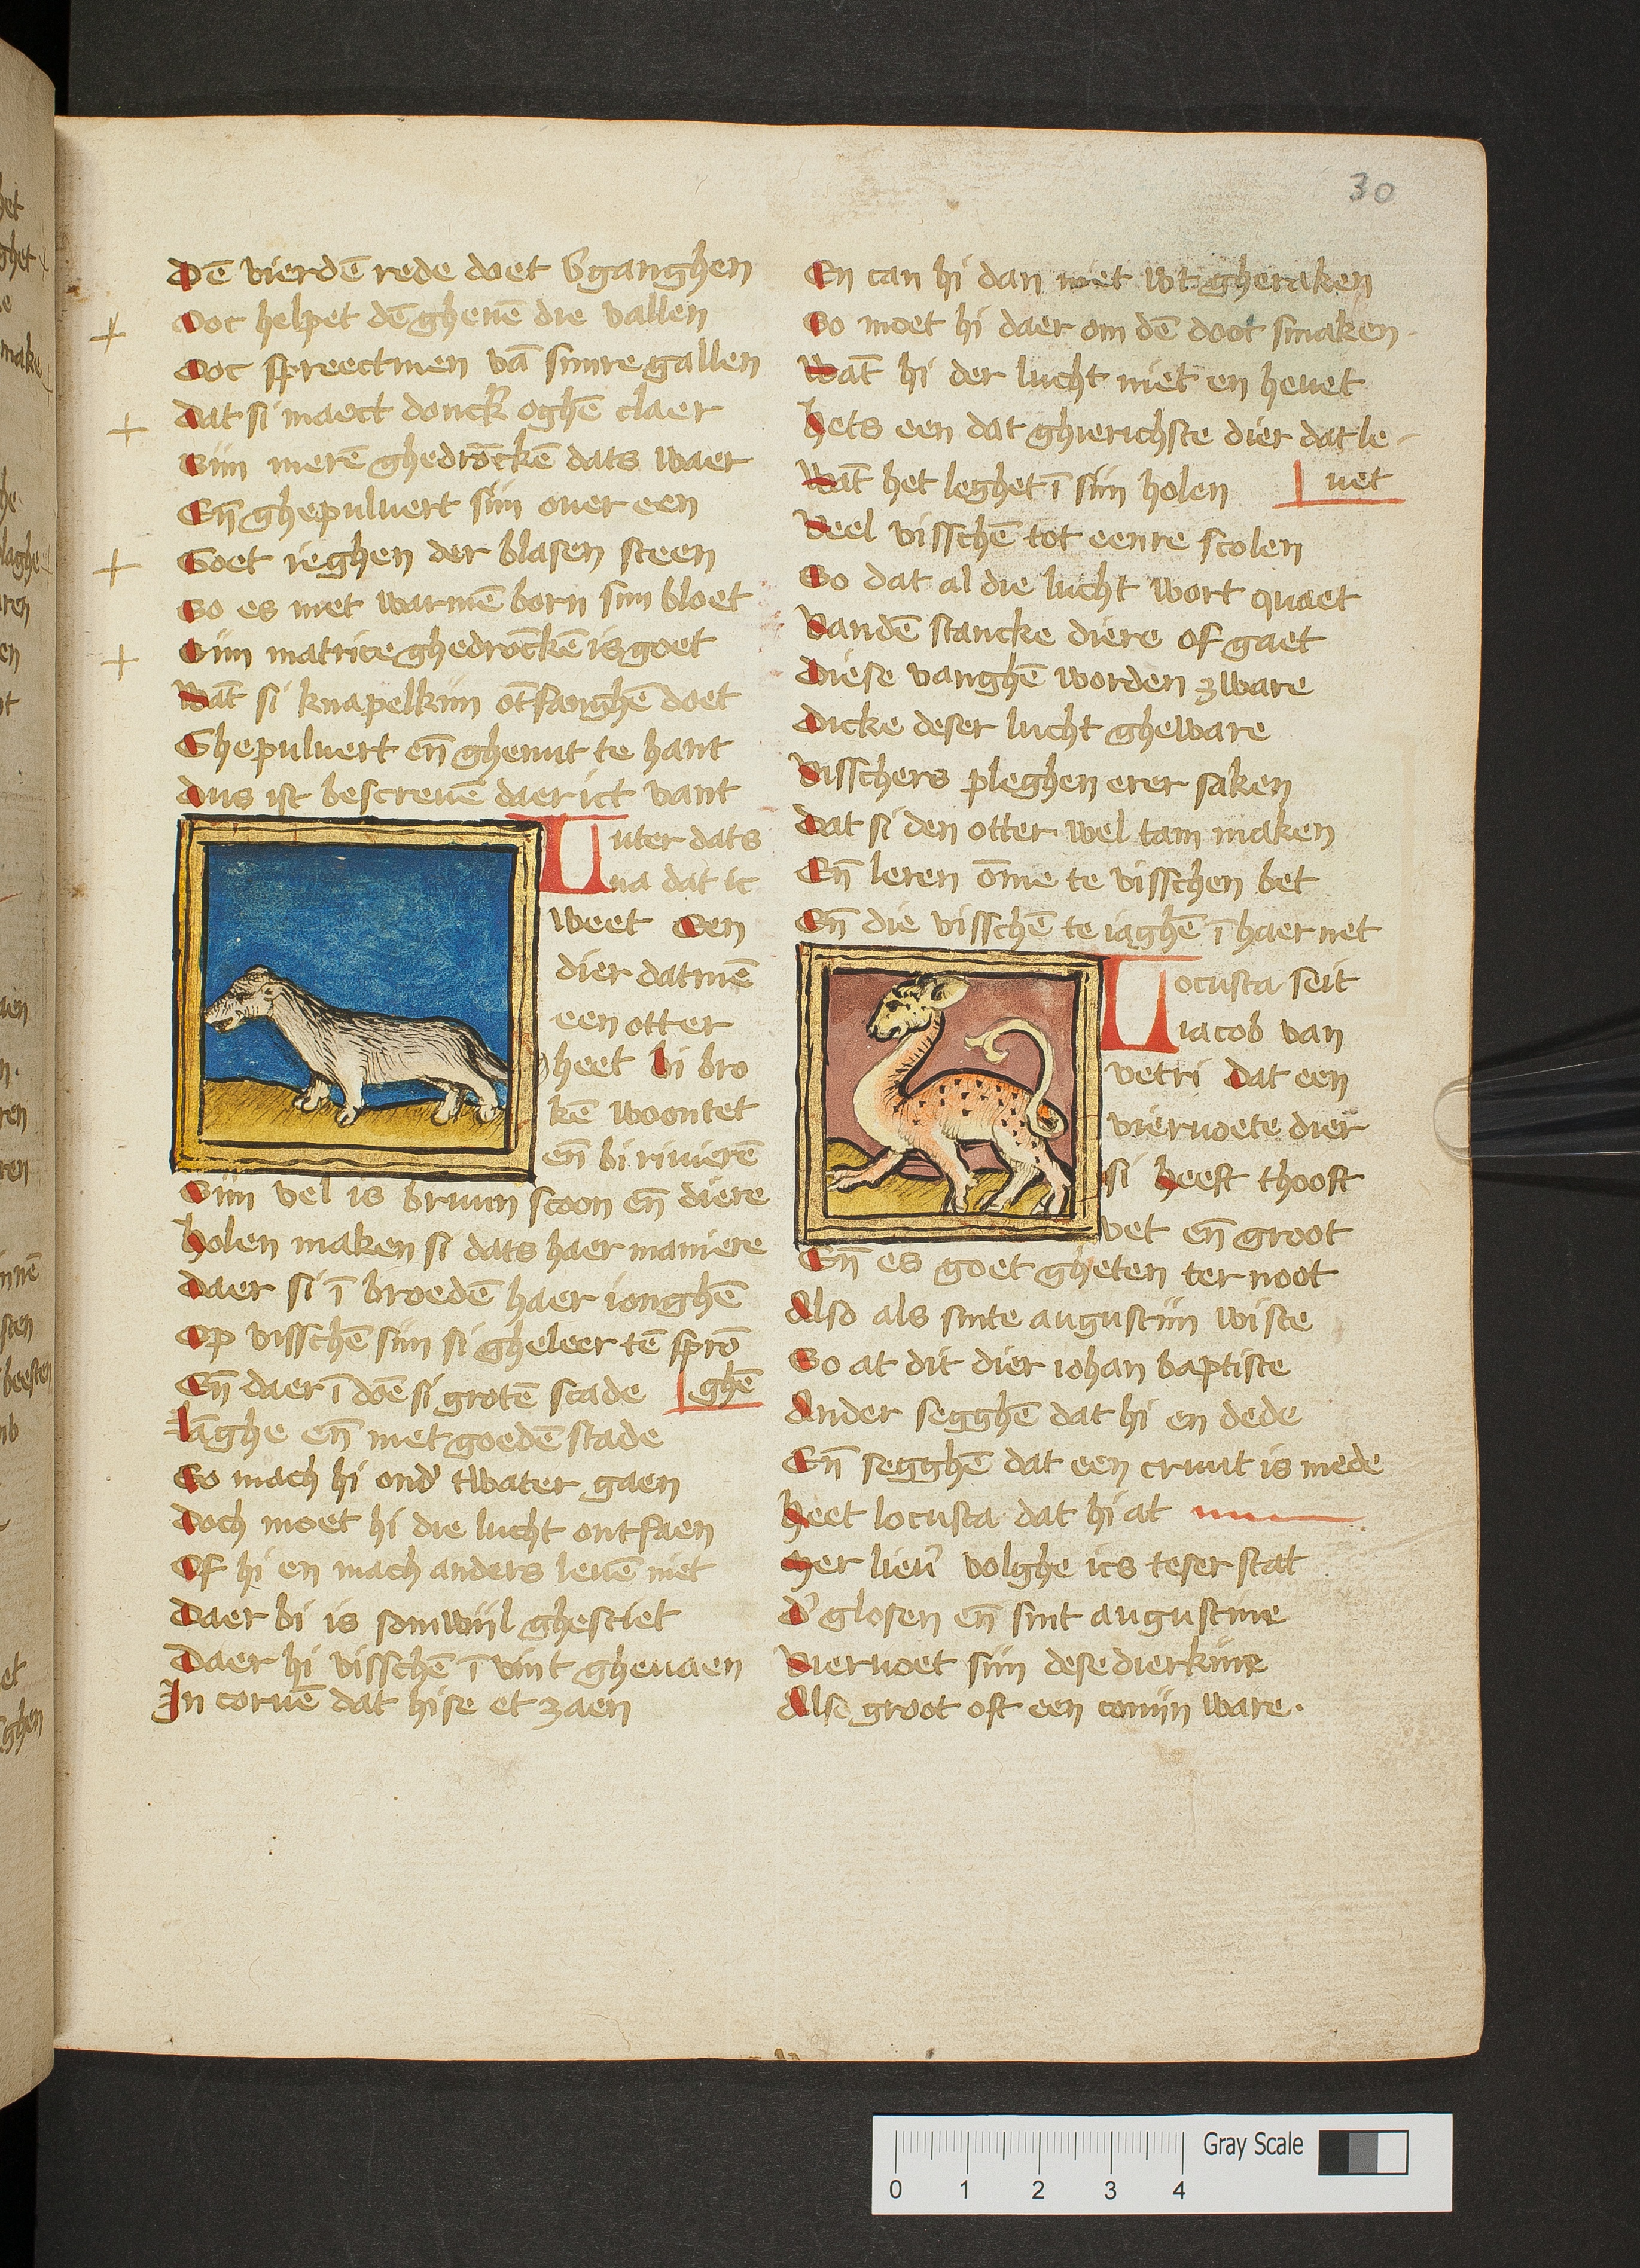 30
Dē vierdē rede doet v̄ganghen
Ooc helpet dē ghenē die vallen
Ooc spreectmen vā sinre gallen
Dat si maect donck̄ oghē claer
Siin nierē ghedrōckē dats waer
En̄ ghepuluert siin ouer een
Goet ieghen der blasen steen
So es met warmē born siin bloet
Siin matrice ghedrōckē is goet
Wāt si knapelkiin ōtfanghē doet
Ghepuluert en̄ ghenut te hant
Dus ist bescreuē daer ict vant
Luter dats
na dat ic
weet Een
dier datmē
een otter
heet bi bro
kē woontet
en̄ bi riuierē
Siin vel is bruun scoon en̄ diere
holen maken si dats haer maniere
Daer si ī broedē haer ionghē
Op visschē siin si gheleer tē sprō
ghē
En̄ daer ī dōe si grotē scade
lāghe en̄ met goedē stade
So mach hi ond' twater gaen
Doch moet hi die lucht ontfaen
Of hi en mach anders leuē niet
Daer bi is somwiil ghesciet
Daer hi visschē ī vint gheuaen
In coruē dat hi se et zaen
En can hi dan niet wt gheraken
So moet hi daer om dē doot smaken
Wāt hi der lucht niet en heuet
hets een dat ghierichste dier dat le
uet
Wāt het leghet ī siin holen
Veel visschē tot eenre scolen
So dat al die lucht wort quaet
Vandē stancke diere of gaet
Diese vanghē worden zware
Dicke deser lucht gheware
Visschers pleghen erer saken
Dat si den otter wel tam maken
En̄ leren ōme te visschen bet
En̄ die visschē te iaghē ī haer net
Locusta seit
iacob van
vetri Dat een
vieruoete dier
si heeft thooft
vet en̄ groot
En̄ es goet gheten ter noot
Also als sinte augustiin wiste
So at dit dier iohan baptiste
Ander segghē dat hi en dede
En̄ segghē dat een cruut is mede
heet locusta dat hi at
Mer lieu' volghe ics teser stat
D' glosen en̄ sint augustine
Vieruoet siin dese dierkiine
Also groot oft een coniin ware.
Gray Scale
0 1 2 3 4